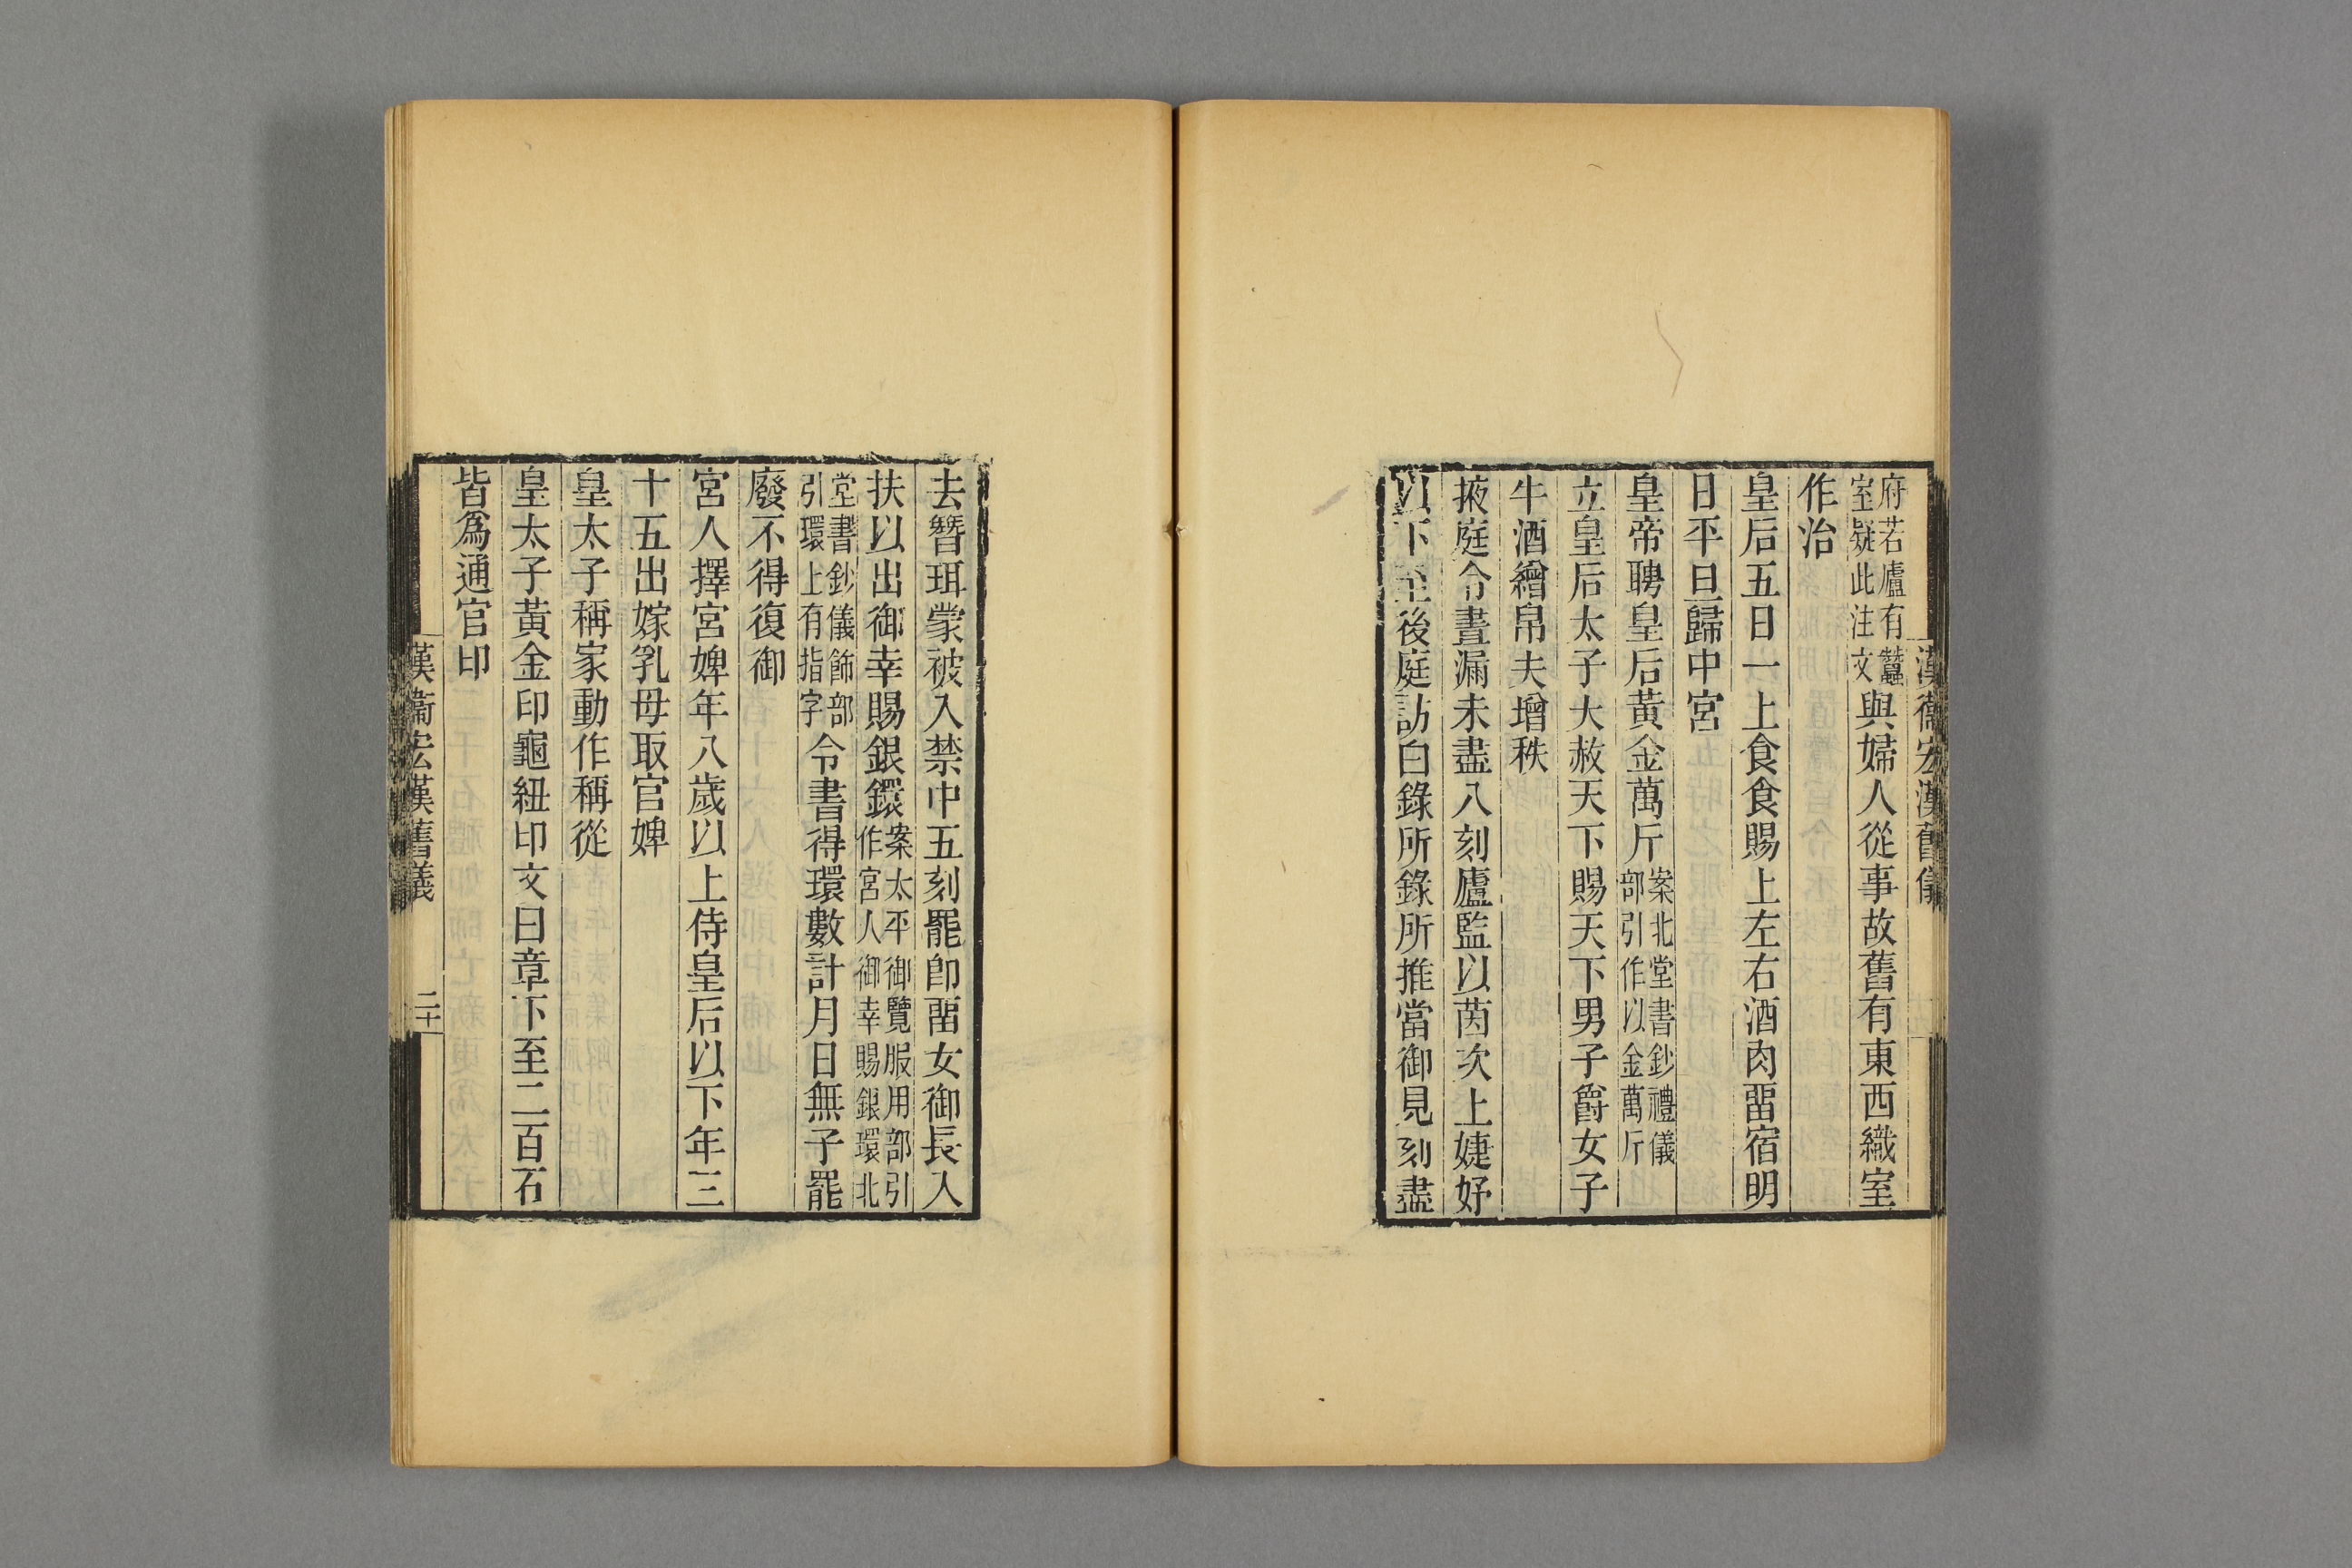 漢衞宏漢舊儀
府若廬有蠶
室疑此注文
與婦人從事故舊有東西織室
作治
皇后五日一上食食賜上左右酒肉畱宿明
日平旦歸中宮
皇帝聘皇后黃金萬斤
案北堂書鈔禮儀
部引作以金萬斤
立皇后太子大赦天下賜天下男子爵女子
牛酒繒帛夫增秩
掖庭令晝漏未盡八刻廬監以茵次上婕妤
以下至後庭訪白錄所錄所推當御見刻盡
去簪珥蒙被入禁中五刻罷卽畱女御長入
扶以出御幸賜銀鐶
案太平御覽服用部引
作宮人御幸賜銀環北
堂書鈔儀飾部
引環上有指字
令書得環數計月日無子罷
廢不得復御
宮人擇宮婢年八歲以上侍皇后以下年三
十五出嫁乳母取官婢
皇太子稱家動作稱從
皇太子黃金印龜紐印文曰章下至二百石
皆爲通官印
漢衞宏漢舊儀
二十